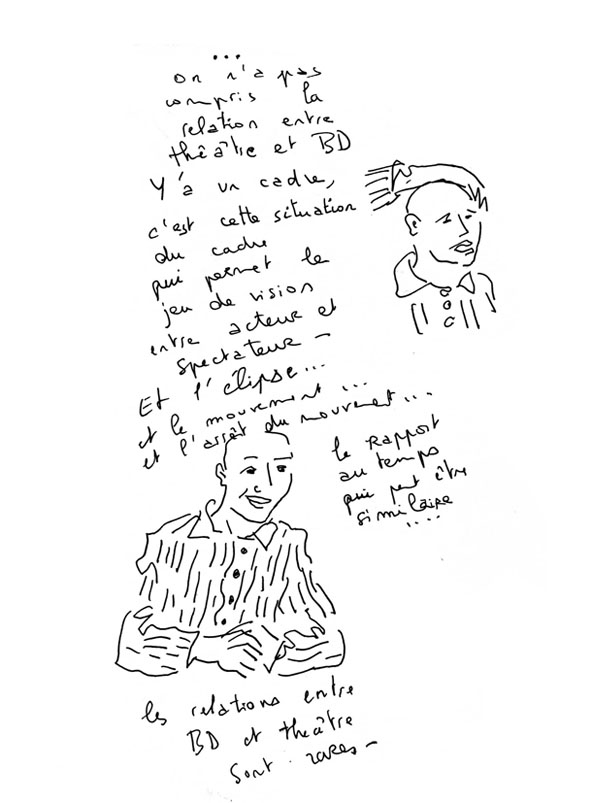 ...
on n'a pas
compris la
relation entre
théâtre et BD
Y'a un cadre,
c'est cette situation
du cadre
qui permet le
jeu de vision
entre acteur et
spectateur –
Et l'élipse...
et le mouvement ...
et l'arrêt du mouvement...
le rapport
au temps
qui peut être
similaire
....
les relations entre
BD et théâtre
sont rares –